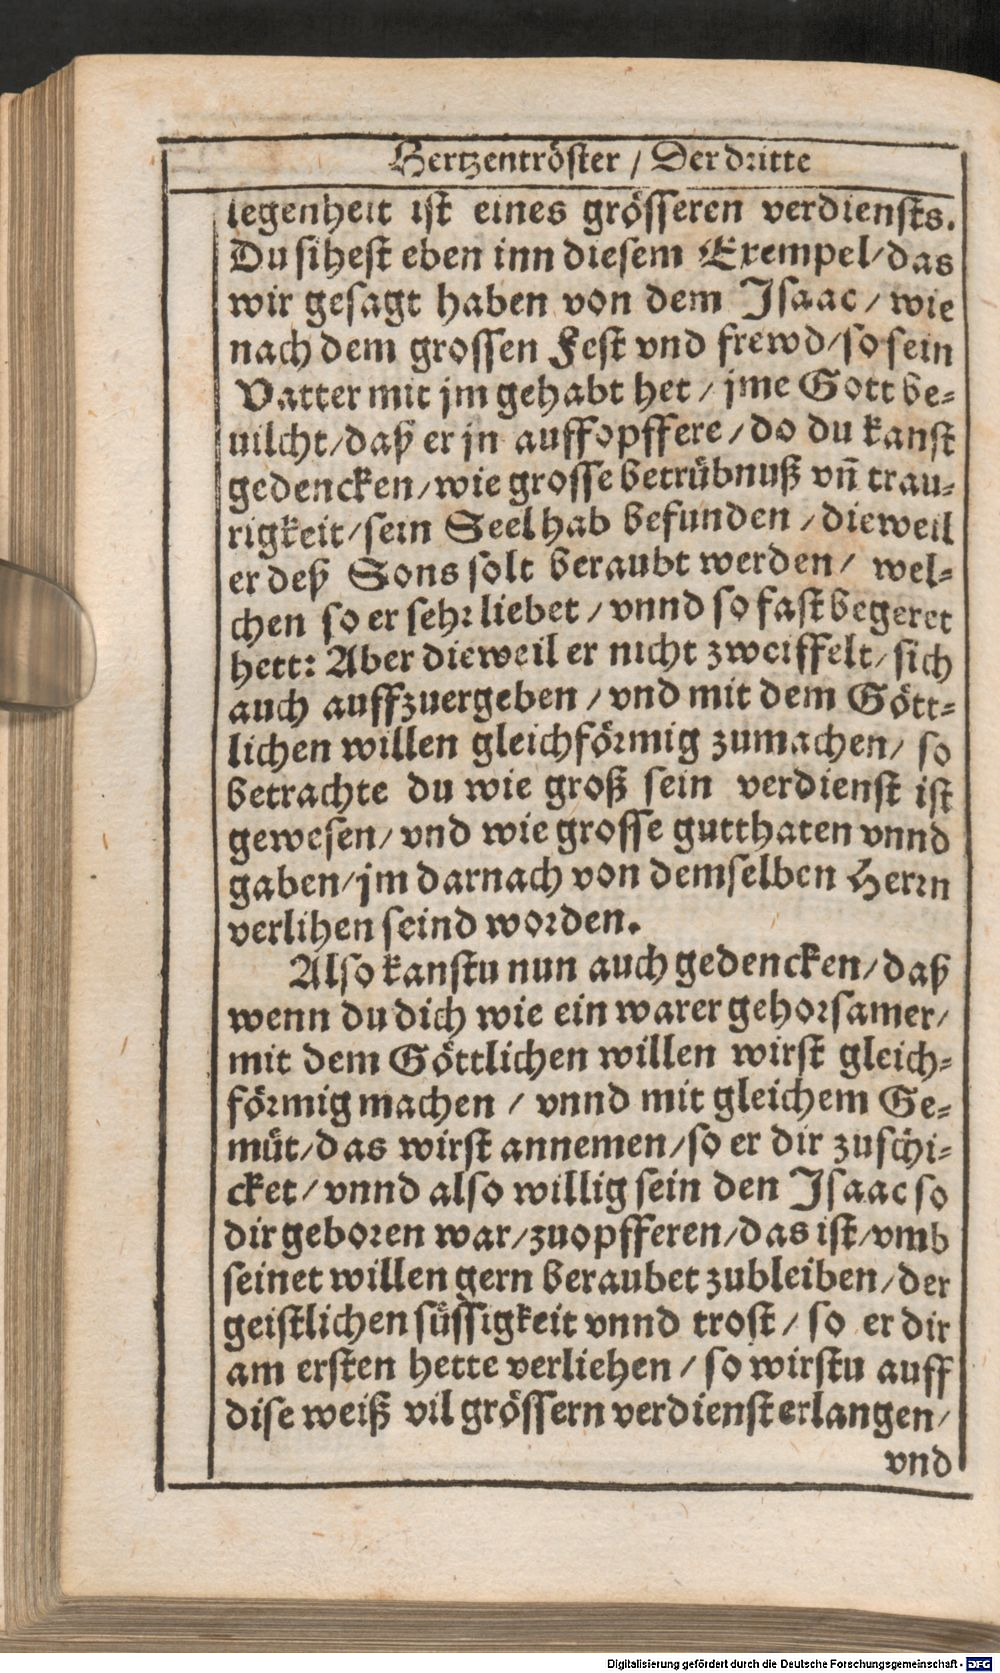 Hertzentröster / Der dritte
legenheit ist eines grösseren verdiensts.
Du sihest eben inn diesem Exempel/das
wir gesagt haben von dem Isaac / wie
nach dem grossen Fest vnd frewd/so sein
Vatter mit jm gehabt het / jme Gott be-
uilcht/daß er jn auffopffere / do du kanst
gedencken/wie grosse betrübnuß vn̄ trau-
rigkeit/sein Seel hab befunden / dieweil
er deß Sons solt beraubt werden / wel-
chen so er sehr liebet / vnnd so fast begeret
hett: Aber dieweil er nicht zweiffelt/sich
auch auffzuergeben / vnd mit dem Gött-
lichen willen gleichförmig zumachen/ so
betrachte du wie groß sein verdienst ist
gewesen/ vnd wie grosse gutthaten vnnd
gaben/jm darnach von demselben Herrn
verlihen seind worden.
Also kanstu nun auch gedencken/daß
wenn du dich wie ein warer gehorsamer/
mit dem Göttlichen willen wirst gleich-
förmig machen / vnnd mit gleichem Ge-
müt/das wirst annemen/so er dir zuschi-
cket / vnnd also willig sein den Isaac so
dir geboren war/zuopfferen/das ist/vmb
seinet willen gern beraubet zubleiben/der
geistlichen süssigkeit vnnd trost / so er dir
am ersten hette verliehen / so wirstu auff
dise weiß vil grössern verdienst erlangen/
vnd
Digitalisierung gefördert durch die Deutsche Forschungsgemeinschaft - DFG